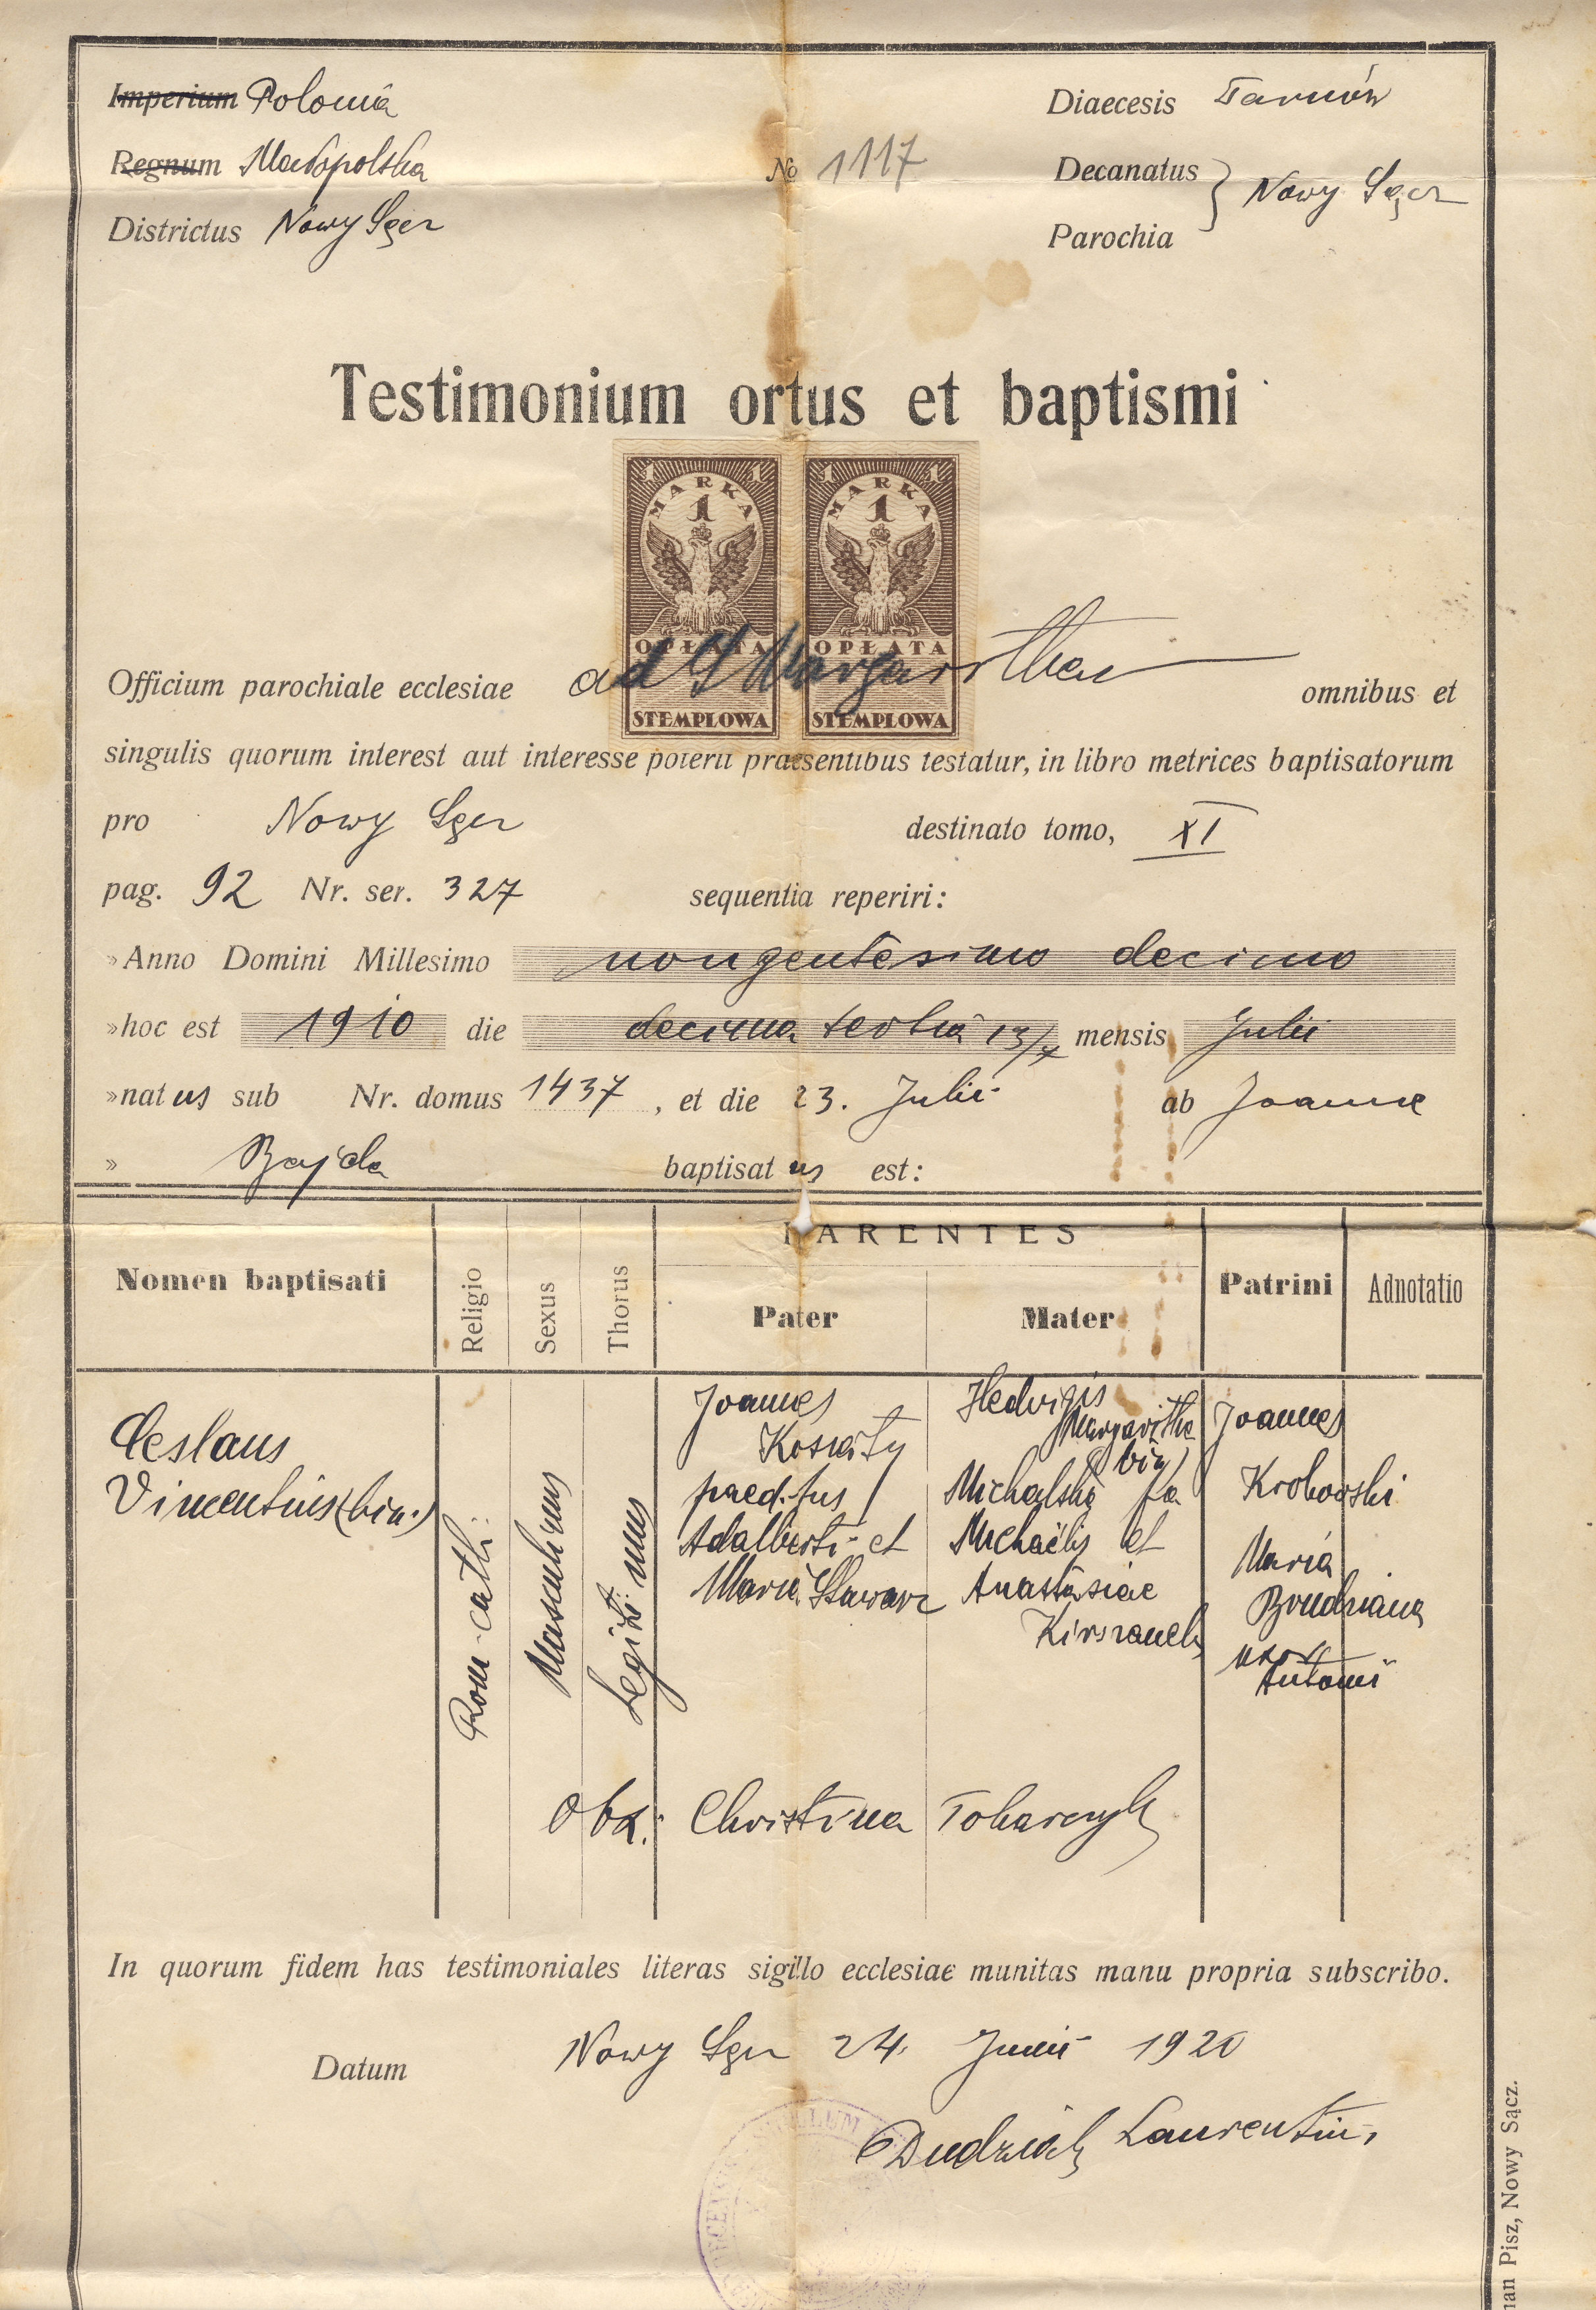 Imperium Polonia
Diaecesis Tarnów
Regnum Małopolska
No 1117
Decanatus
Parochia
Nowy Sącz
Districtus Nowy Sącz
Testimonium ortus et baptismi
1 MARKA 1 1 OPŁATA STEMPLOWA
1 MARKA 1 1 OPŁATA STEMPLOWA
Officium parochiale ecclesiae ad S Margaritham omnibus et
singulis quorum interest aut interesse poterit praesentibus testatur, in libro metrices baptisatorum
pro Nowy Sącz destinato tomo, XI
pag. 92 Nr. ser. 327 sequentia reperiri:
»Anno Domini Millesimo nongentesimo decimo
»hoc est 1910 die decima tertia 13/7 mensis Julii
»natus sub Nr. domus 1437, et die 23. Julii ab Joanne
» Bajda baptisatus est:
Nomen baptisati
Religio
Sexus
Thorus
PARENTES
Pater
Mater
Patrini
Adnotatio
Ceslaus
Vincentius (bin.)
Rom-cath:
Masculinus
Legiti mus
Joannes
paed. fus
Adalberti et
Maria
Hedvigis
Margaritha
bin)
Michalska fa
Michaëlis et
Anastasiae
Joannes
Krobowski
Maria
uxor
Antonii
Obx: Christina Tokarczyk
In quorum fidem has testimoniales literas sigillo ecclesiae munitas manu propria subscribo.
Datum Nowy Sącz 24. Junii 1920
Dudziak Laurentius
Pisz, Nowy Sącz.